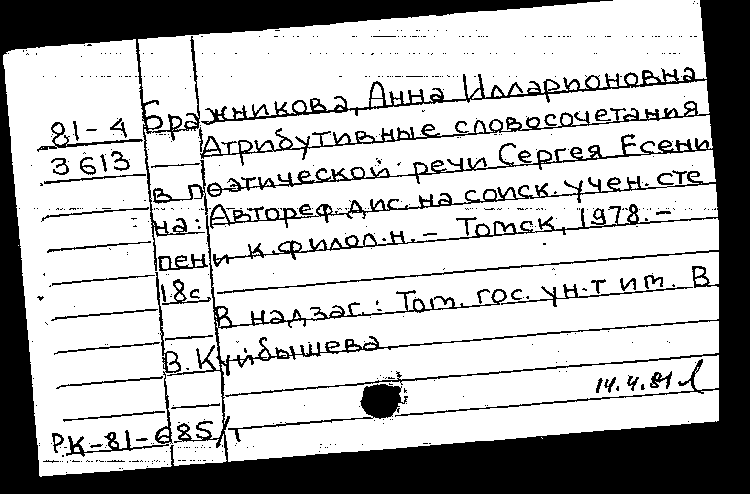 Бражникова, Анна Илларионовна
81-4
3613
Атрибутивные словосочетания
в поэтической речи Сергея Есени
на: Автореф. дис. на соиск. учен. сте
пени к.филол.н. – Томск, 1978. –
18с.
В надзаг.: Том. гос. ун-т им. В.
В. Куйбышева.
14.4.81
РК-81-685/т